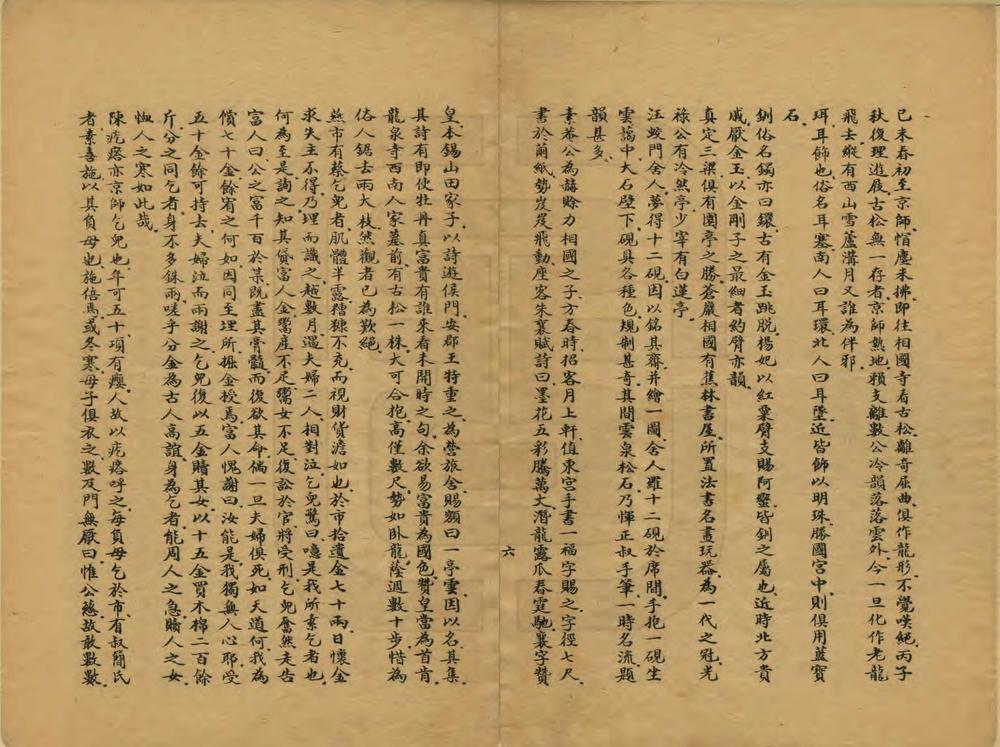 己未春初至京師帽塵未拂即往相國寺看古松離奇屈曲俱作龍形不覺嘆絕丙子
秋復理遊屐古松無一存者京師熱地賴支離數公冷韻落落雲外今一旦化作老龍
飛去縱有西山雪蘆溝月又誰為伴邪
珥耳飾也俗名耳塞南人曰耳環北人曰耳墜近皆飾以明珠勝國宮中則俱用藍寶
石
釧俗名鐲亦曰鐶古有金玉跳脫楊妃以紅粟臂支賜阿蠻皆釧之屬也近時北方貴
戚厭金玉以金剛子之最細者約臂亦韻
真定三梁俱有園亭之勝蒼巖相國有蕉林書屋所置法書名畫玩器為一代之冠光
祿公有冷然亭少宰有白蓮亭
汪蛟門舍人夢得十二硯因以銘其齋并繪一圖舍人羅十二硯於席間手抱一硯坐
雲牖中大石壁下硯具各種色規制甚奇其間雲泉松石乃惲正叔手筆一時名流題
韻甚多
素菴公為赫賒力相國之子方春時招客月上軒值東宮手書一福字賜之字徑七尺
書於蘭紙勢岌岌飛動座客朱襄賦詩曰墨花五彩騰萬丈潛龍露爪春霆馳襄字贊
皇本錫山田家子以詩遊侯門安郡王特重之為營旅舍賜額曰一亭雲因以名其集
其詩有即使牡丹真富貴有誰來看未開時之句余欲易富貴為國色贊皇當為首肯
龍泉寺西南人家墓前有古松一株大可合抱高僅數尺勢如臥龍蔭過數十步惜為
俗人鋸去兩大枝然觀者已為歎絕
燕市有蔡乞兒者肌體半露糟糠不充而視財貨澹如也於市拾遺金七十兩日懷金
求失主不得乃埋而識之越數月過夫婦二人相對泣乞兒驚曰噫是我所素乞者也
何為至是詢之知其貸富人金鬻產不足鬻女不足復訟於官將受刑乞兒奮然走告
富人曰公之富千百於某既盡其膏髓而復欲其命倘一旦夫婦俱死如天道何我為
償七十金餘宥之何如因同至埋所掘金授焉富人愧謝曰汝能是我獨無人心耶受
五十金餘可持去夫婦泣而兩謝之乞兒復以五金贖其女以十五金買木棉二百餘
斤分之同乞者身不多銖兩嗟乎分金為古人高誼身為乞者能周人之急贖人之女
恤人之寒如此哉
陳疙瘩亦京師乞兒也年可五十項有癭人故以疙瘩呼之每負母乞於市有叔簡氏
者素喜施以其負母也施倍焉或冬寒母子俱衣之數及門無厭曰惟公慈故敢數數
六